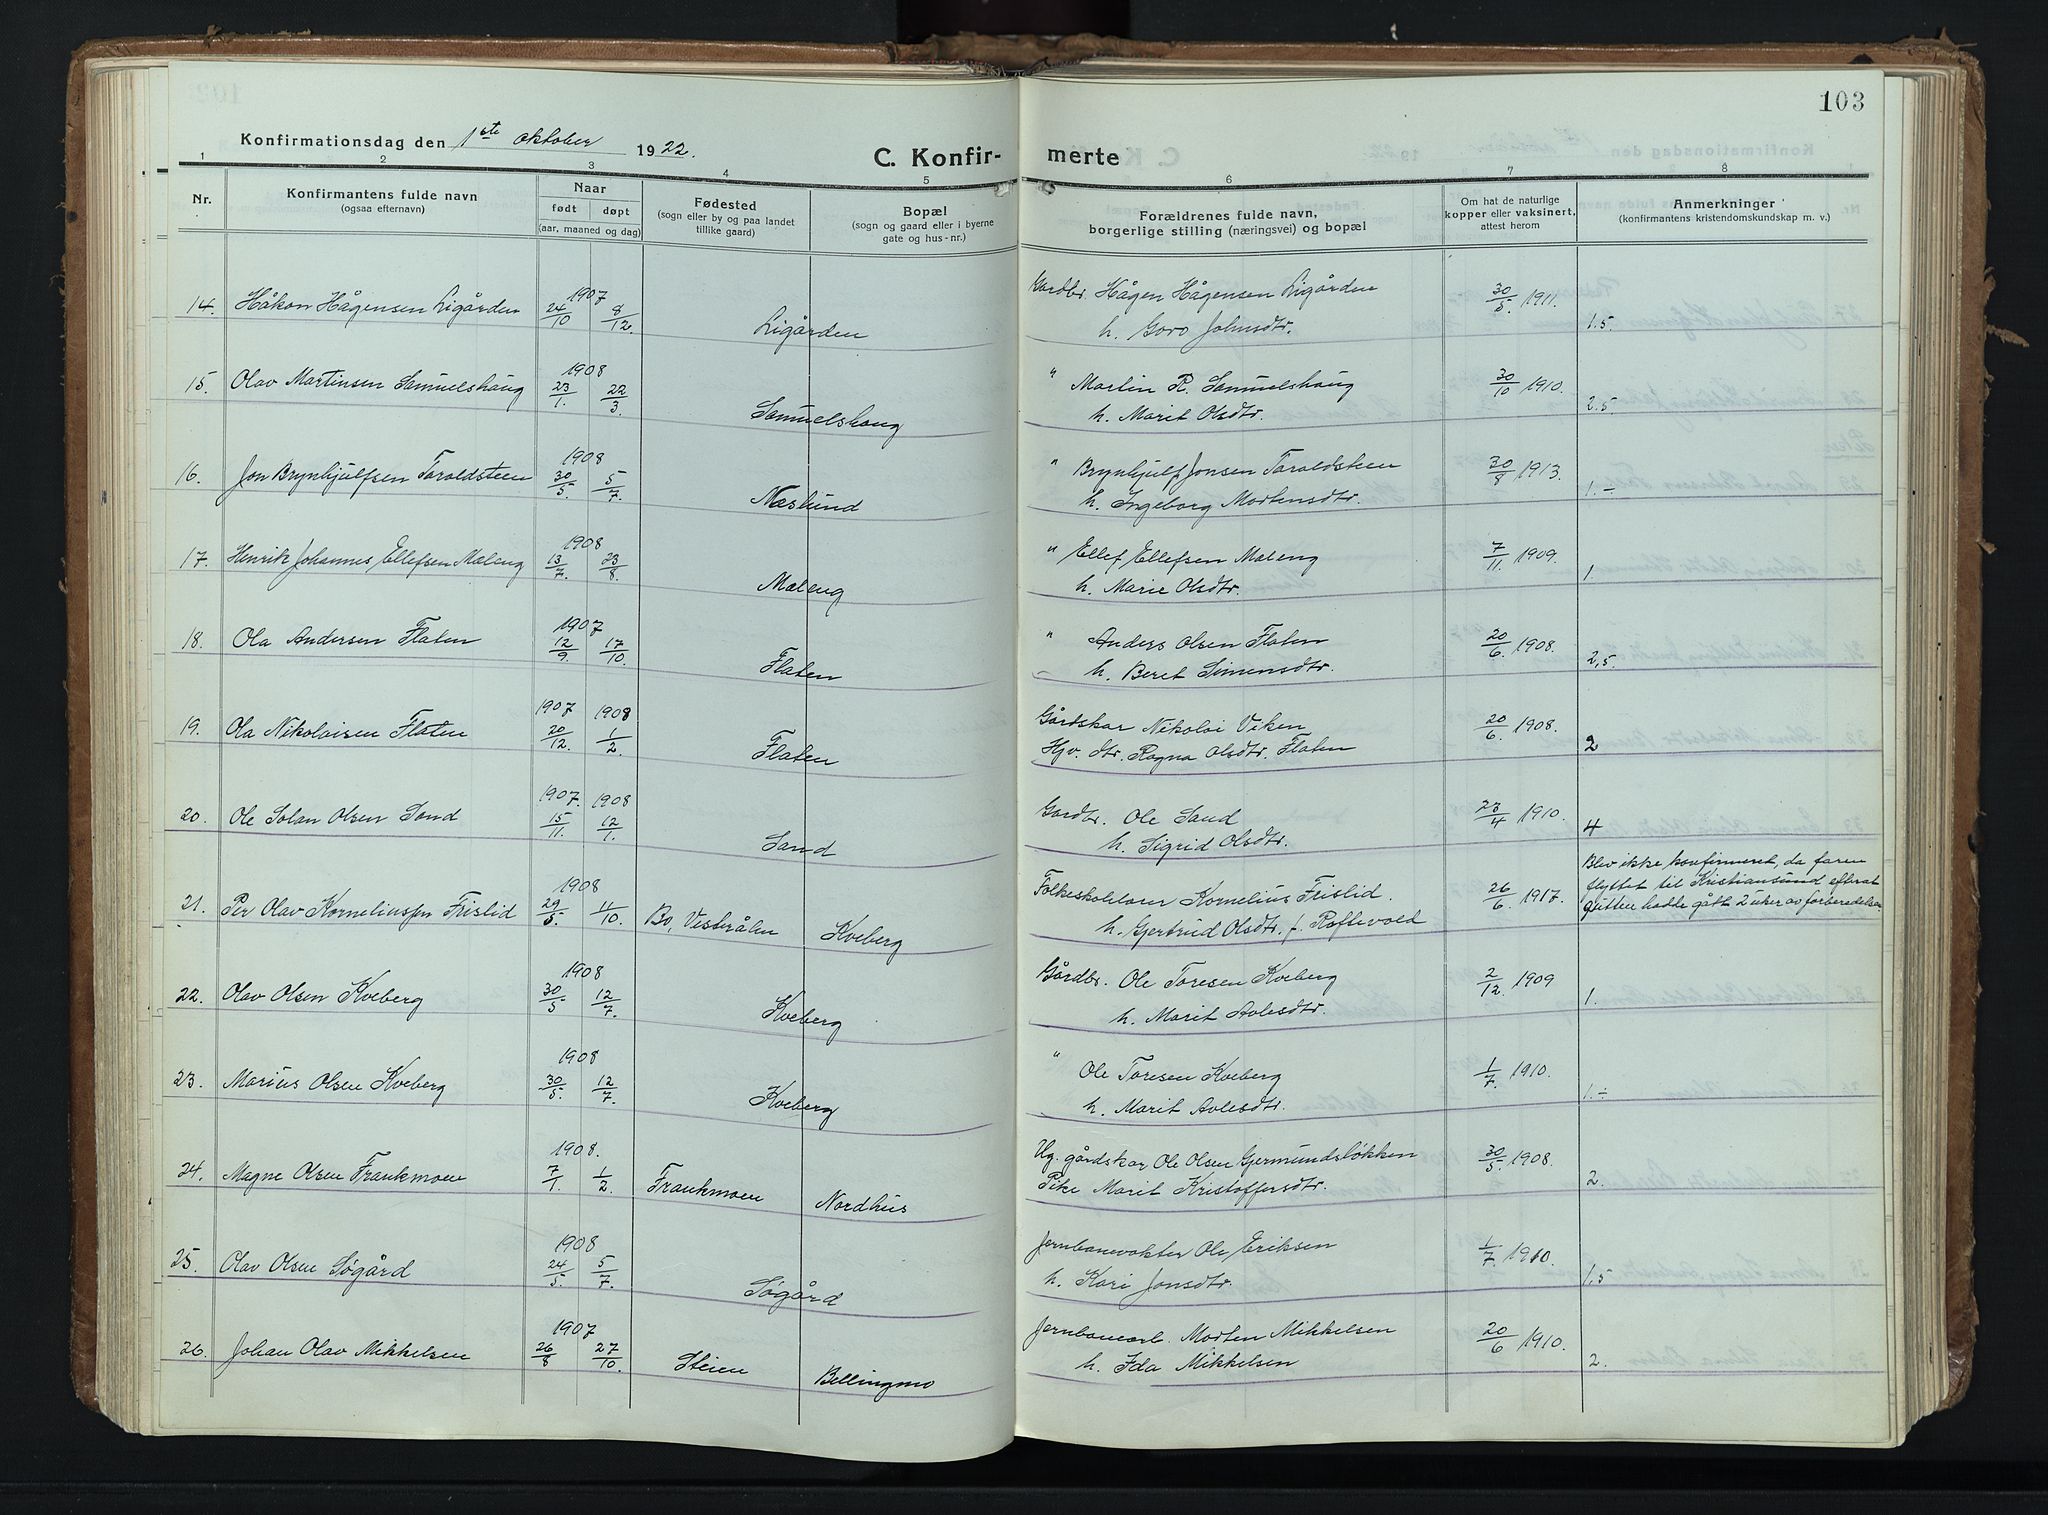 103
Konfirmationsdag den 1ste oktober 1922.
C. Konfirmerte
1 2 3 4 5 6 7 8
Nr.
Konfirmantens fulde navn
(ogsaa efternavn)
Naar
født døpt
(aar, maaned og dag)
Fødested
(sogn eller by og paa landet
tillike gaard)
Bopæl
(sogn og gaard eller i byerne
gate og hus-nr.)
Forældrenes fulde navn,
borgerlige stilling (næringsvei) og bopæl
Om hat de naturlige
kopper eller vaksinert,
attest herom
Anmerkninger
(konfirmantens kristendomskundskap m. v.)
14. Håkon Hågensen Ligården 1907 24/10 8/12 Ligården Hågen Hågensen Ligården 30/5 1911. 1.5
h. Goro Johnsdtr.
15. Olav Martinsen Samuelshaug 1908 23/1. 22/3 Samuelshaug " Martin R. Samuelshaug 30/10 1910. 2.5.
h. Marit Olsdtr.
16. Jon Brynhjulfsen Taraldsteen 1908 30/5. 5/7. Næslund " Brynhjulf Jonsen Taraldsteen 30/8 1913. 1.÷
h. Ingeborg Mortensdtr.
17. Henrik Johannes Ellefsen Mæleng 1908 13/7. 23/8. Mæleng " Ellef Ellefsen Mæleng 7/11 1909. 1.
h. Marie Olsdtr.
18. Ola Andersen Flaten 1907 12/9. 17/10. Flaten " Anders Olsen Flaten 20/6. 1908. 2,5.
h. Beret Simensdtr.
19. Ola Nikolaisen Flaten 1907 20/12. 1908 1/2 Flaten Gårdskar Nikolai Viken 20/6. 1908. 2
Hjv. dtr. Ragna Olsdtr. Flaten
20. Ole Solan Olsen Sand 1907. 15/11. 1908 12/1. Sand Gardbr. Ole Sand 23/4 1910. 4
h. Sigrid Olsdtr.
21. Per Olav Korneliussen Frislid 1908 29/5. 11/10. Bø, Vesterålen Kveberg Folkeskolelærer Kornelius Frislid. 26/6. 1917. Blev ikke konfirmeret, da faren
flyttet til Kristiansund efterat
gutten hadde gått 2 uker av forberedelsen
h. Gjertrud Olsdtr. f. Roftevold
22. Olav Olsen Kveberg 1908 30/5 12/7. Kveberg Gårdbr. Ole Toresen Kveberg 2/12. 1909 1.
h. Marit Avlesdtr.
23. Marius Olsen Kveberg 1908 30/5. 12/7. Kveberg " Ole Toresen Kveberg 1/7. 1910. 1.÷
h. Marit Avlesdtr.
24. Magne Olsen Frankmoen 1908. 7/1. 1/2. Frankmoen Nordhus Ug. gårdskar Ole Olsen Gjermundsløkken 30/5. 1908. 2.
Pike Marit Kristoffersdtr.
25. Olav Olsen Søgård 1908 24/5. 5/7. Søgård Jernbanevokter Ole Eriksen 1/7. 1910. 1,5
h. Kari Jonsdtr.
26. Johan Olav Mikkelsen 1907 26/8 27/10. Steien Bellingmo Jernbanearb. Morten Mikkelsen 20/6 1910. 2.
h. Ida Mikkelsen